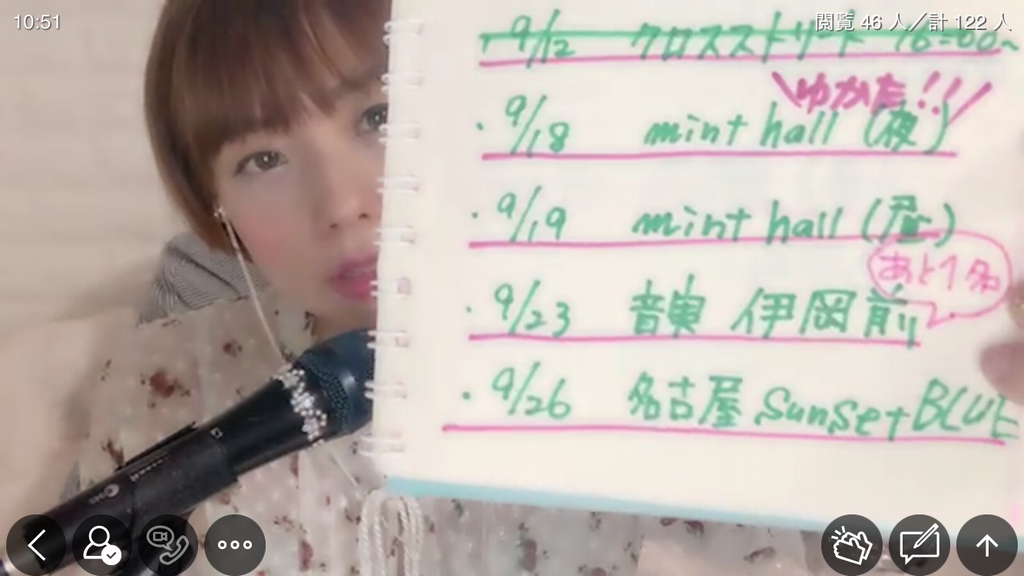 10:51
閲覧 46 人／計 122 人
・9/12 クロスストリート 16:00~
\ゆかた!!!/
・9/18 mint hall (夜)
・9/19 mint hall (昼)
あと1名
・9/23 音実 伊岡前
・9/26 名古屋 Sunset BLUE